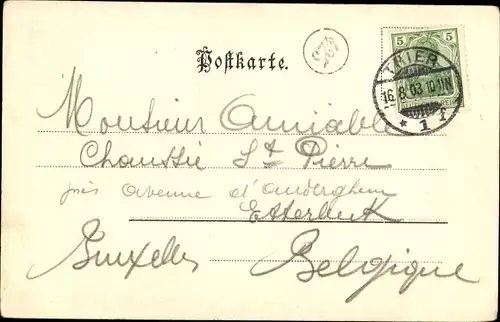 5
Postkarte.
TRIER
16.8.03.10-11V
* 1 f
Monsieur Amiable
Chaussée St Pierre
près avenue d'auderghem
Etterbeek
Bruxelles Belgique